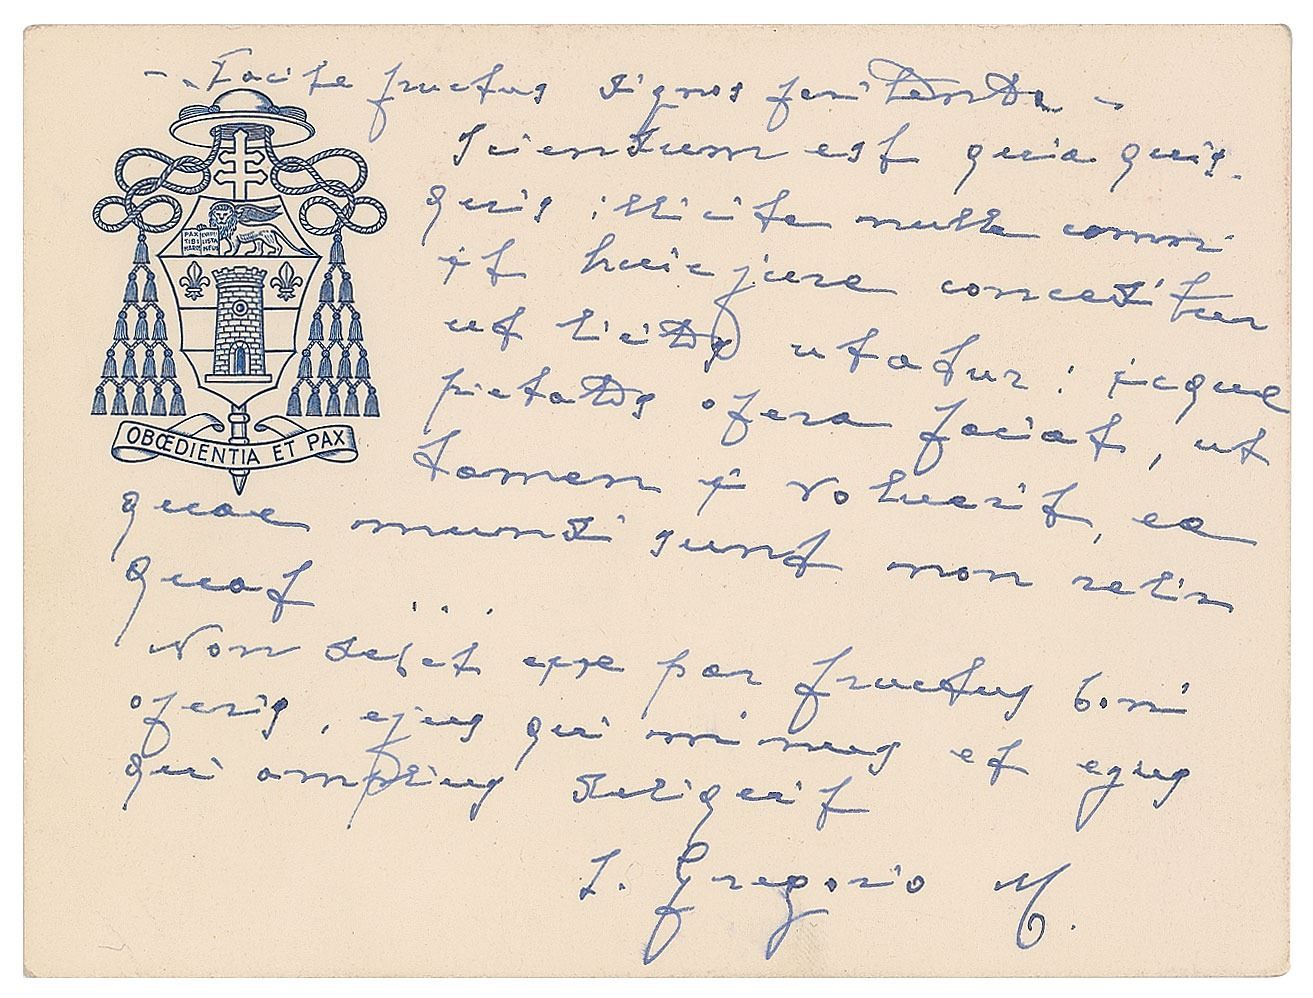 - Facite fructus dignos penitentia -
Sciendum est quia quis-
quis illicita nulla commi-
sit huic jure conceditur
ut licitis utatur : sicque
pietatis opera faciat, ut
tamen si voluerit, ea
quae mundi sunt non relin
quat ...
Non debet esse par fructus boni
operis, ejus qui minus et ejus
qui amplius deliquit
S. Gregorio M.
PAX
TIBI
OBŒDIENTIA ET PAX